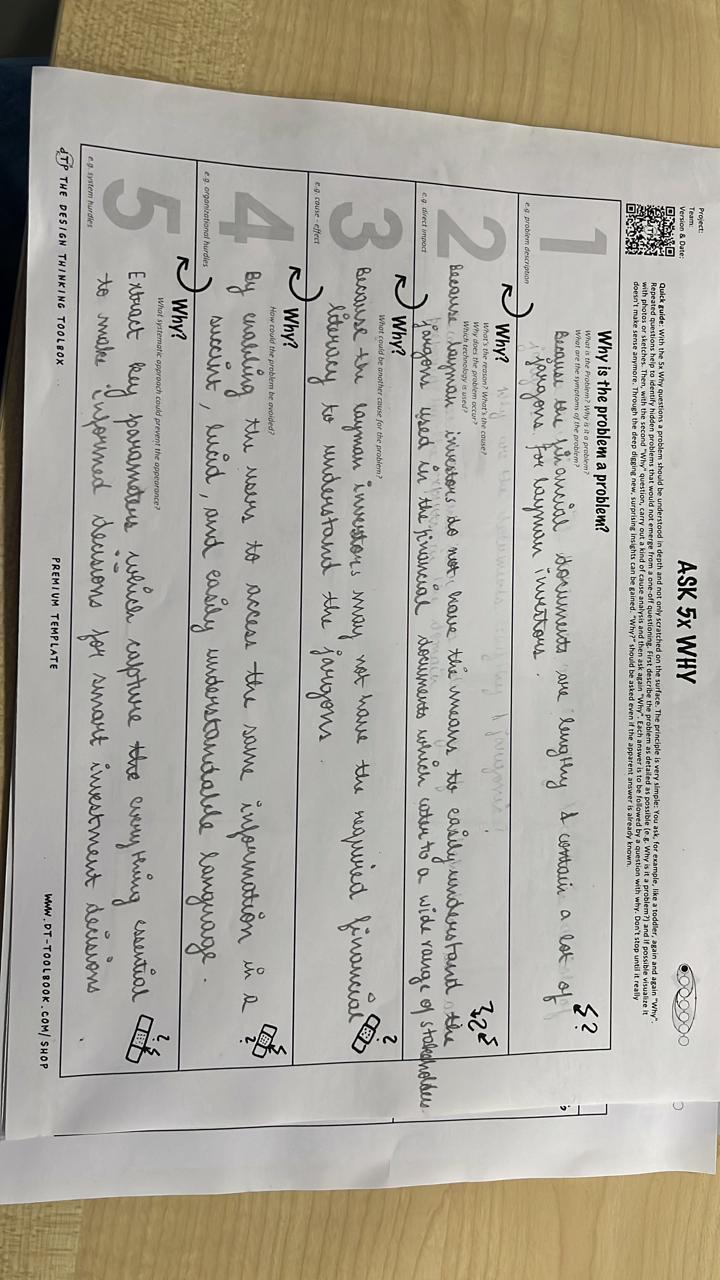 Project:
Team:
Version & Date:
ASK 5x WHY
Quick guide: With the 5x Why questions a problem should be understood in depth and not only scratched on the surface. The principle is very simple: You ask, for example, like a toddler, again and again "Why".
Repeated questions help to identify hidden problems that would not emerge from a one-off questioning. First describe the problem as detailed as possible (e.g. Why is it a problem?) and if possible visualize it
with photos or sketches. Then, with the second "Why" question, carry out a kind of cause analysis and then ask again "Why". Each answer is to be followed by a question with why. Don't stop until it really
doesn't make sense anymore. Through the deep digging new, surprising insights can be gained. "Why?" should be asked even if the apparent answer is already known.
1
Why is the problem a problem?
What is the Problem? Why is it a problem?
What are the symptoms of the problem?
?
Because the financial documents are lengthy & contain a lot of
jargons for layman investors.
e.g. problem description
2
Why?
Why are the documents lengthy & jargonic?
What's the reason? What's the cause?
Why does the problem occur?
Which technology is used?
Because layman investors do not have the means to easily understand the
jargons used in the financial documents which cater to a wide range of stakeholders.
e.g. direct impact
3
Why?
What could be another cause for the problem?
?
Because the layman investors may not have the required financial
literacy to understand the jargons.
e.g. cause - effect
4
Why?
How could the problem be avoided?
?
By enabling the users to access the same information in a
succint, lucid, and easily understandable language.
e.g. organizational hurdles
5
Why?
What systematic approach could prevent the appearance?
?
Extract key parameters which capture the everything essential
to make informed decisions for smart investment decisions.
e.g. system hurdles
dTP THE DESIGN THINKING TOOLBOX
PREMIUM TEMPLATE
WWW.DT-TOOLBOOK.COM/SHOP